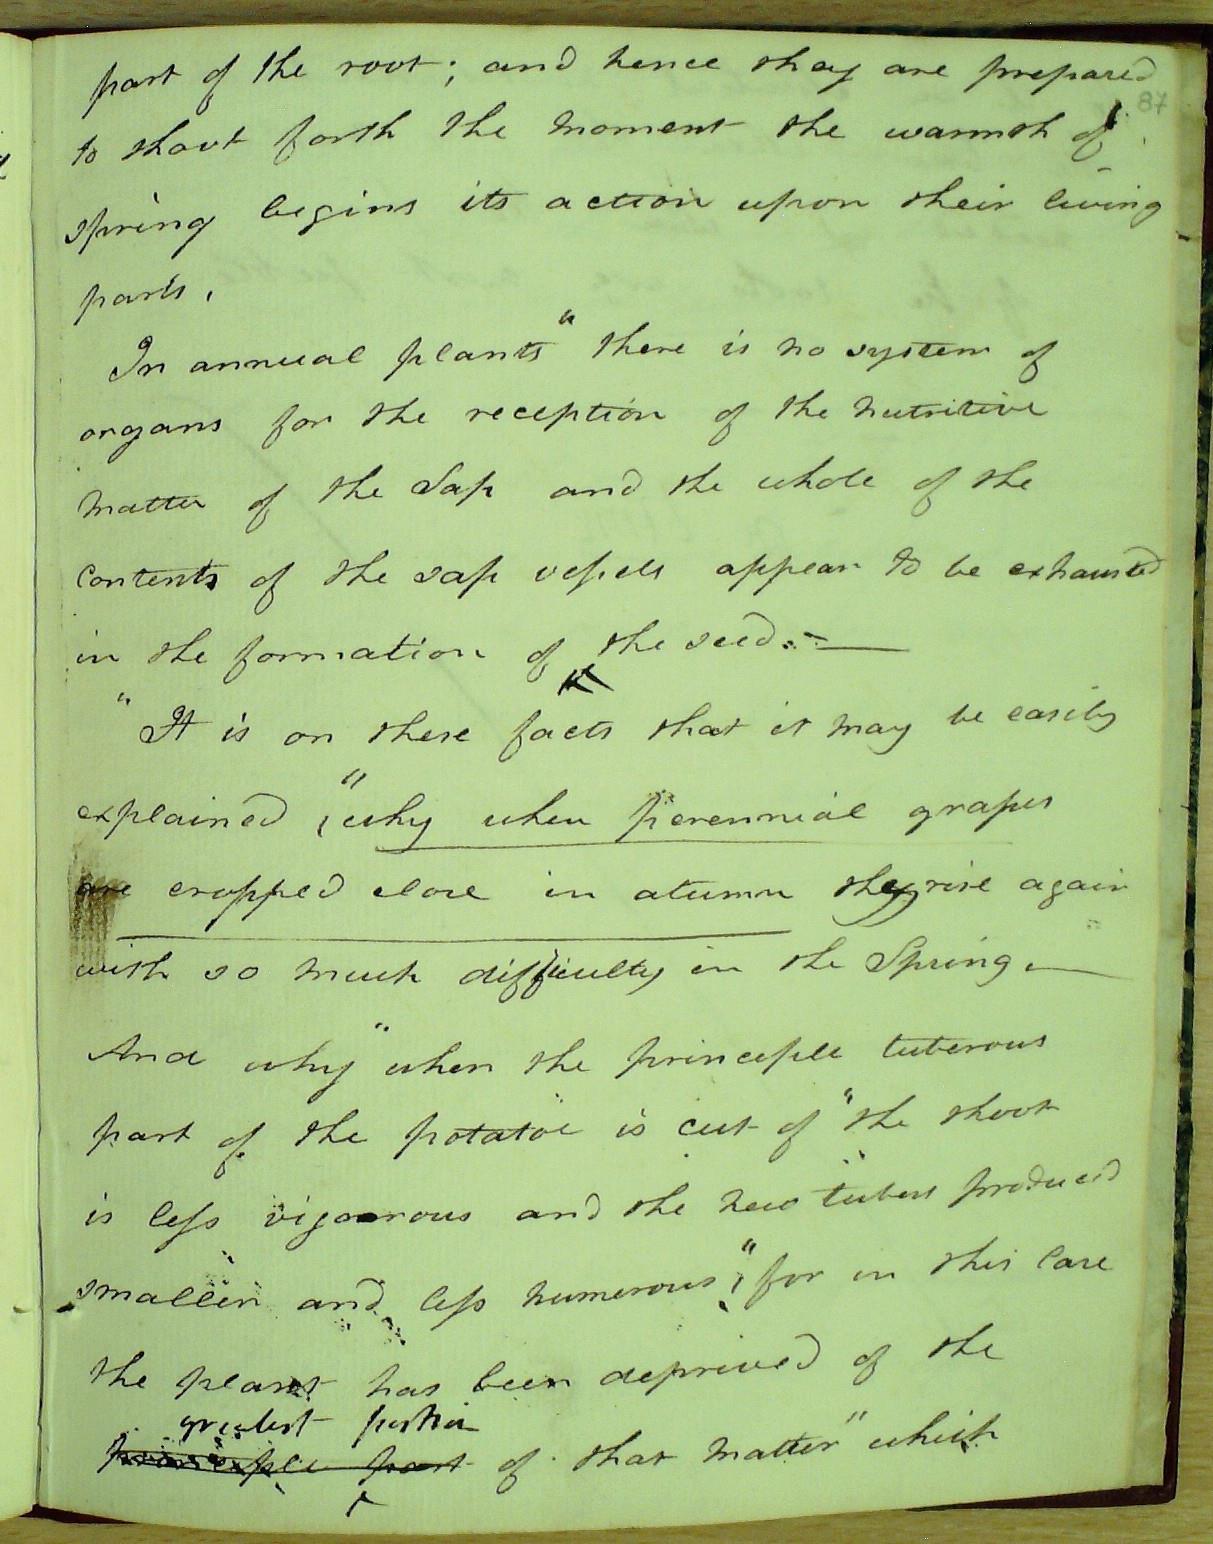 part of the root; and hence they are prepared
87
to shoot forth the moment the warmth of
spring begins its action upon their living
parts.
In annual plants" there is no system of
organs for the reception of the nutritive
matter of the Sap and the whole of the
contents of the sap vessels appear to be exhausted
in the formation of the seed. —
"It is on these facts that it may be easily
explained, "why when perennial grapes
are cropped close in atumn they rise again
with so much difficulty in the Spring. —
And why "when the principle tuberous
part of the potatoe is cut of "the shoot
is less vigorous and the new tubers produced
smaller and less numerous", for in this case
the plant has been deprived of the
greatest portion
principle part of that matter" which